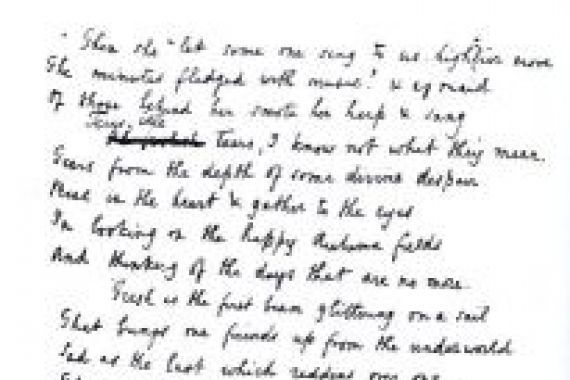 Then she "let some one sing to us. lightlier move
The minutes fledged with music! & a maid
Of those behind her smote her harp & sang
Tears, idle
Tears, I know not what they mean.
Tears from the depth of some divine despair
Rise in the heart & gather to the eyes
In looking on the happy Autumn fields
And thinking of the days that are no more.
Fresh as the first beam glittering on a sail
That brings our friends up from the underworld
Sad as the last which reddens over one